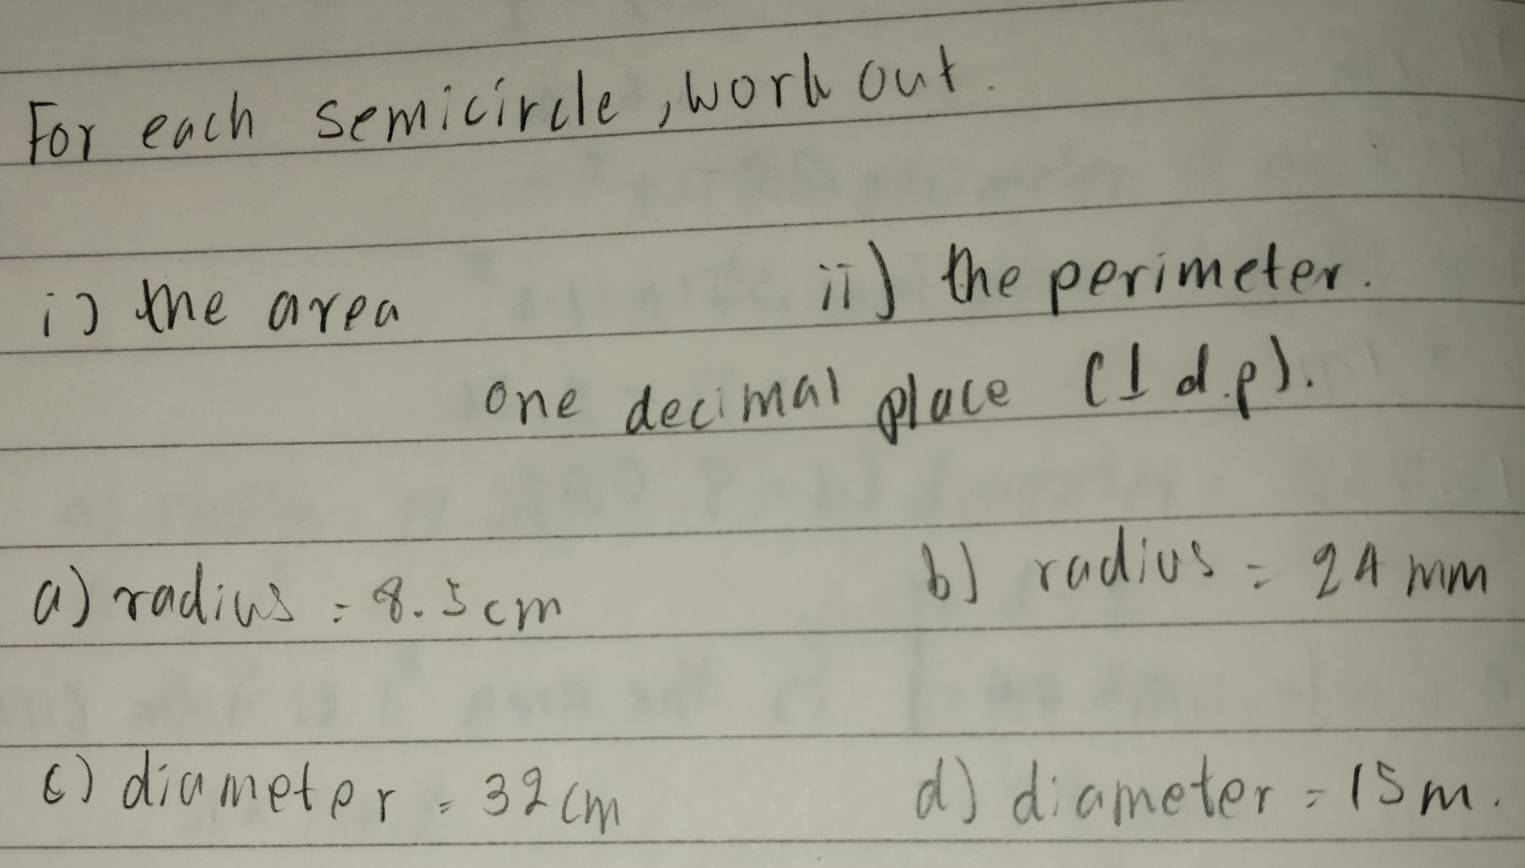 For each semicircle, work out.
i) the area ii) the perimeter.
one decimal place (1 d.p).
a) radius = 8.5 cm b) radius = 24 mm
c) diameter = 32 cm d) diameter = 15 m.